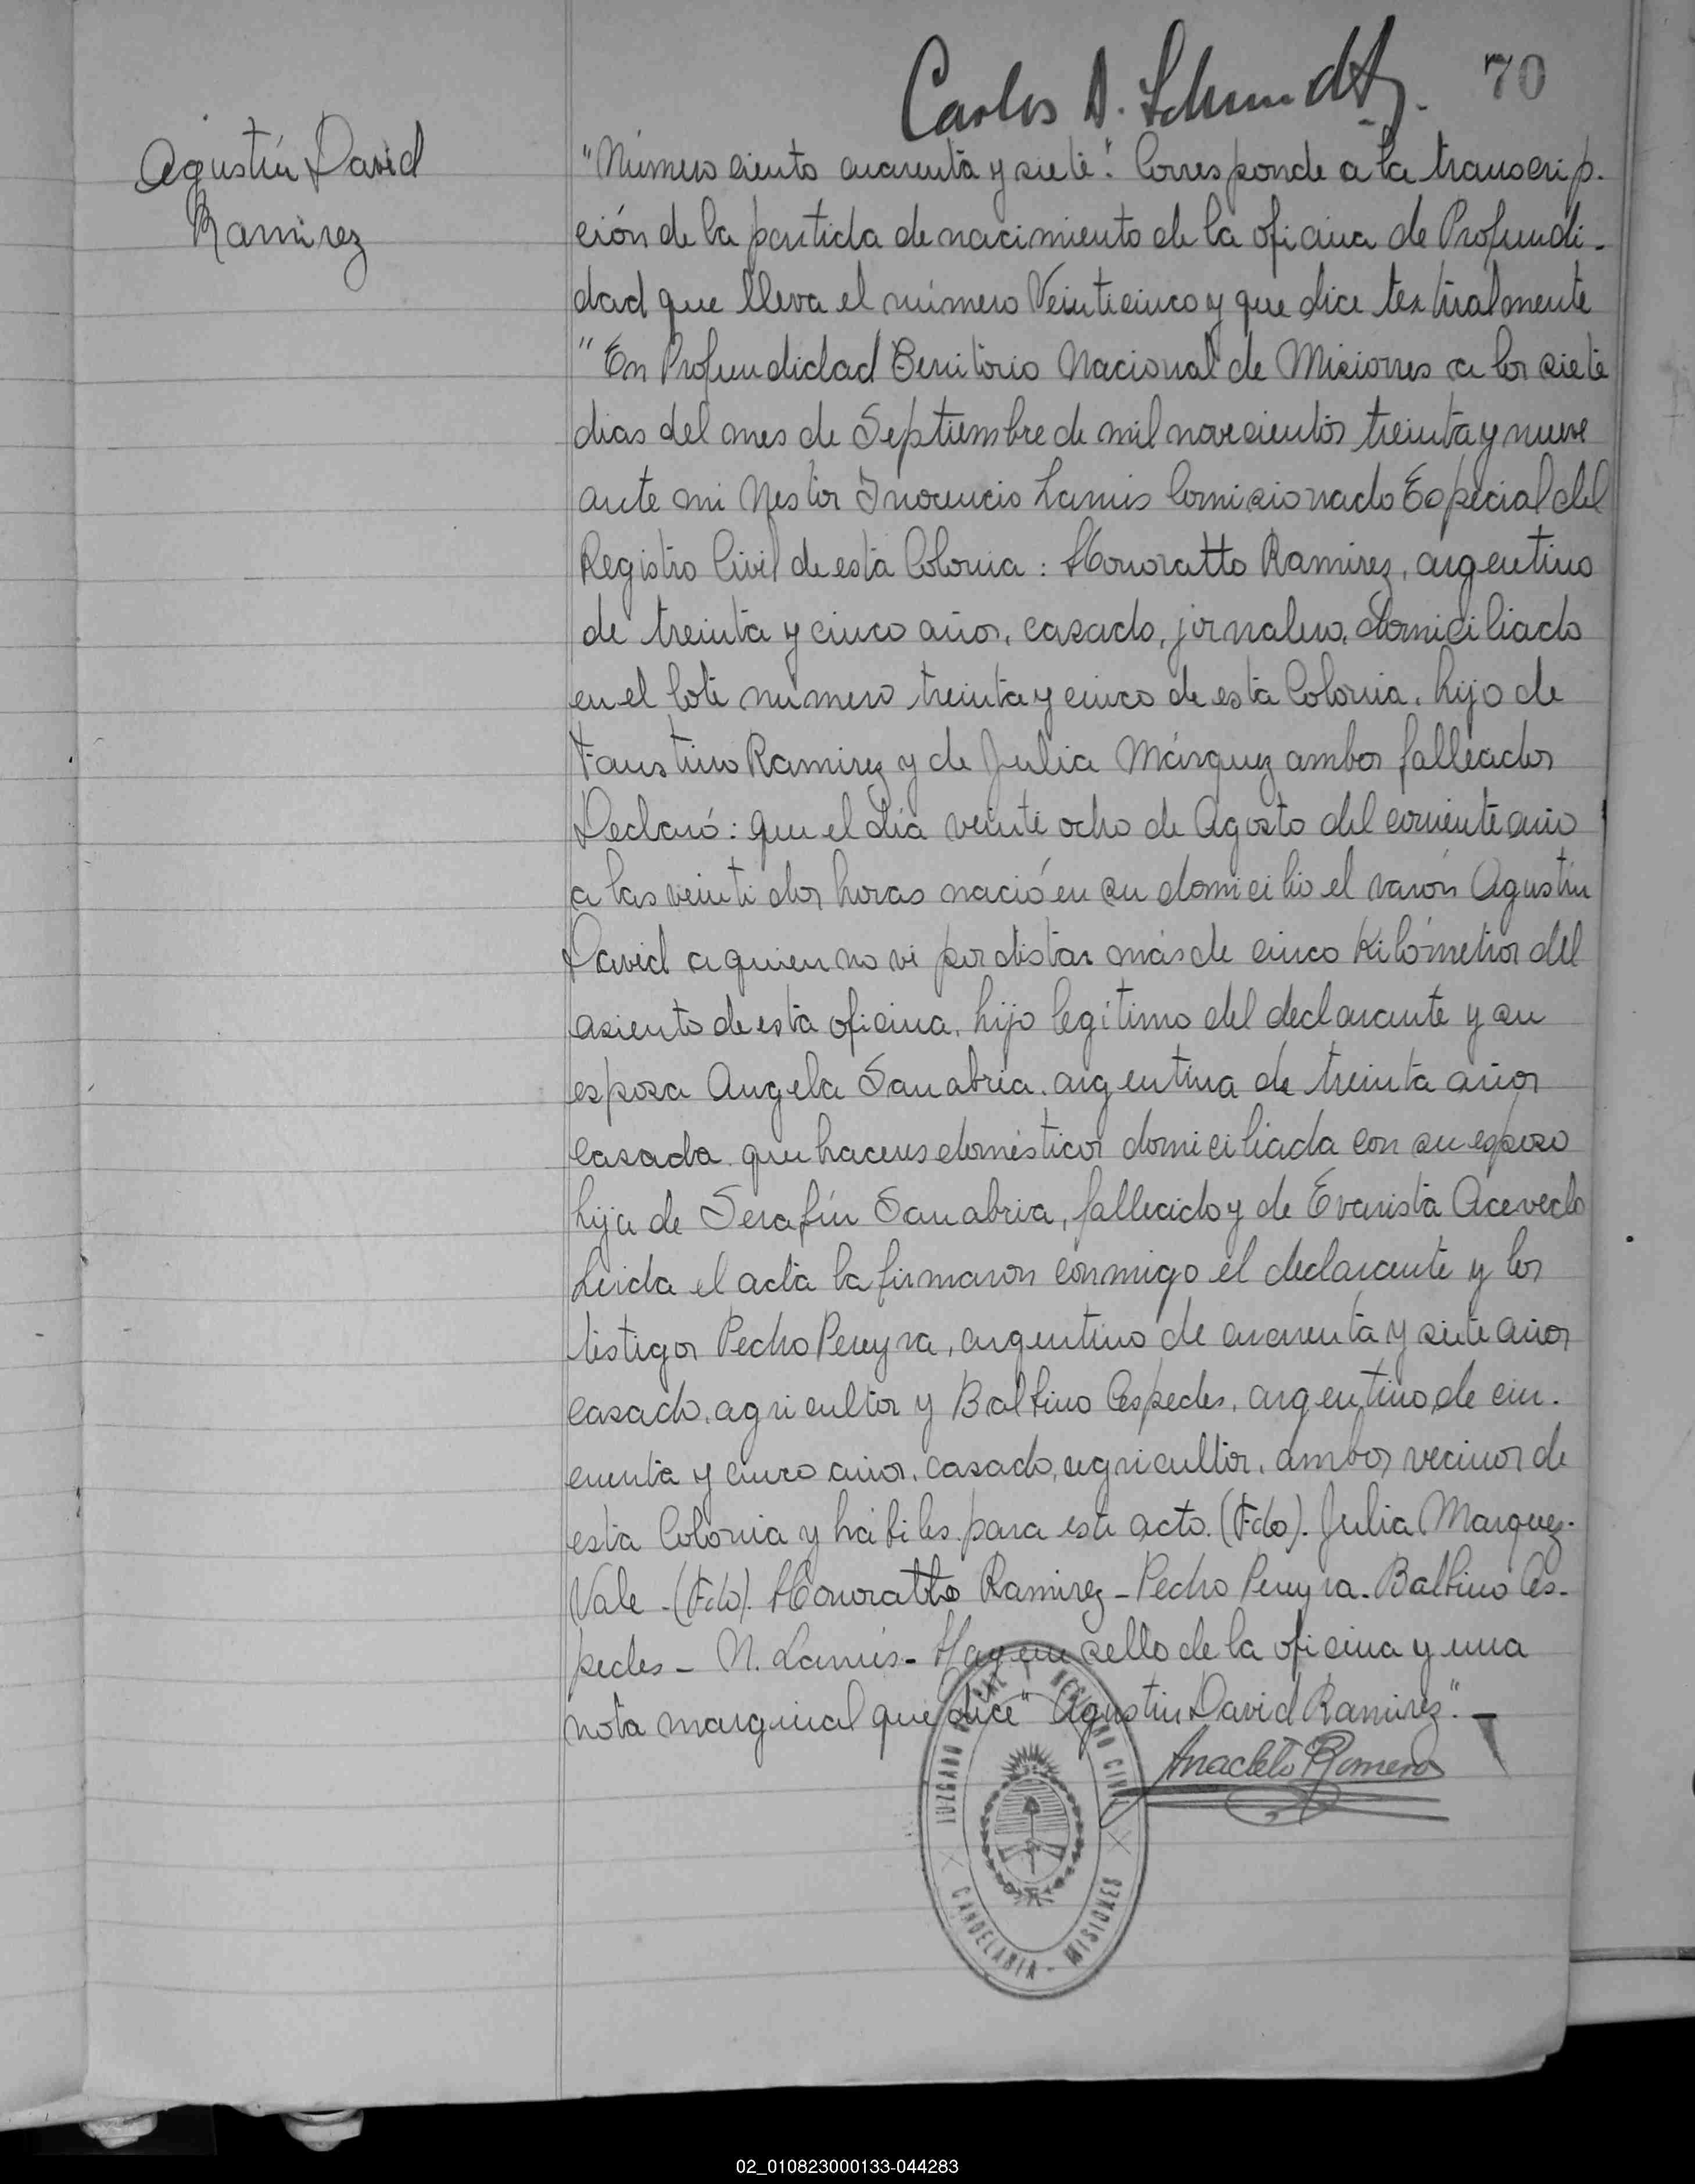 Carlos A. Schmidt 70
Agustín David
Ramirez
"Número ciento cuarenta y siete". Corresponde a la transcrip-
ción de la partida de nacimiento de la oficina de Profundi-
dad que lleva el número Veinticinco y que dice textualmente
"En Profundidad Territorio Nacional de Misiones a los siete
dias del mes de Septiembre de mil novecientos treinta y nueve
ante mi Nestor Inocencio Lamis Comisionado Especial del
Registro Civil de esta Colonia: Honoratto Ramirez, argentino
de treinta y cinco años, casado, jornalero, domiciliado
en el lote número treinta y cinco de esta Colonia, hijo de
Faustino Ramirez y de Julia Márquez ambos fallecidos
Declaró: que el día veinte ocho de Agosto del corriente año
a las veinti dos horas nació en su domicilio el varón Agustin
David a quien no vi por distar más de cinco Kilómetros del
asiento de esta oficina, hijo legítimo del declarante y su
esposa Angela Sanabria, argentina de treinta años
casada quehaceres domésticos domiciliada con su esposo
hija de Serafín Sanabria, fallecido y de Evarista Acevedo
Leida el acta la firmaron conmigo el declarante y los
testigos Pedro Pereyra, argentino de cuarenta y siete años
casado, agricultor y Balbino Cespedes, argentino, de cin-
cuenta y cinco años, casado, agricultor, ambos vecinos de
esta Colonia y hábiles para este acto. (Fdo). Julia Marquez-
Vale - (Fdo). Honoratto Ramirez - Pedro Pereyra - Balbino Ces-
pedes - N. Lamis - Hay un sello de la oficina y una
nota marginal que dice "Agustin David Ramirez". -
Anacleto Romero
JUZGADO DE PAZ Y REGISTRO CIVIL
CANDELARIA - MISIONES
02_010823000133-044283